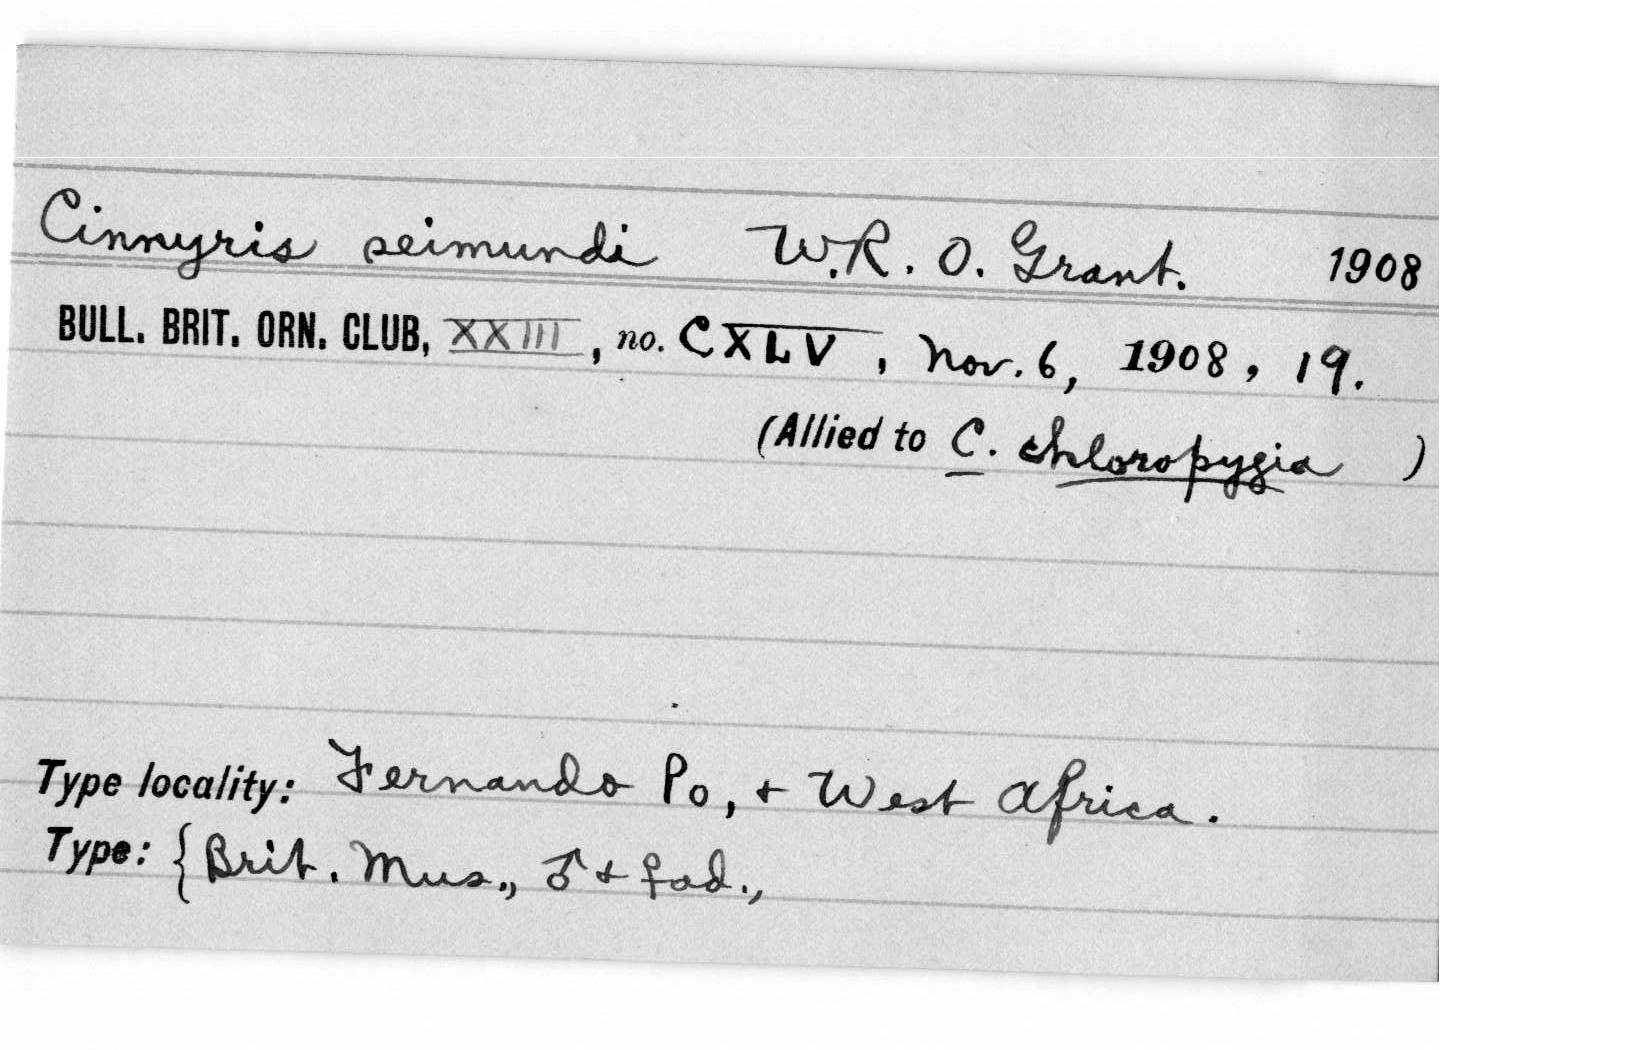 Cinnyris seimundi W.R. O. Grant. 1908
BULL. BRIT. ORN. CLUB, XXIII, no. CXLV, Nov. 6, 1908, 19.
(Allied to C. chloropygia )
Type locality: Fernando Po, + West Africa.
Type: {Brit. Mus., ♂ + ♀ ad.,